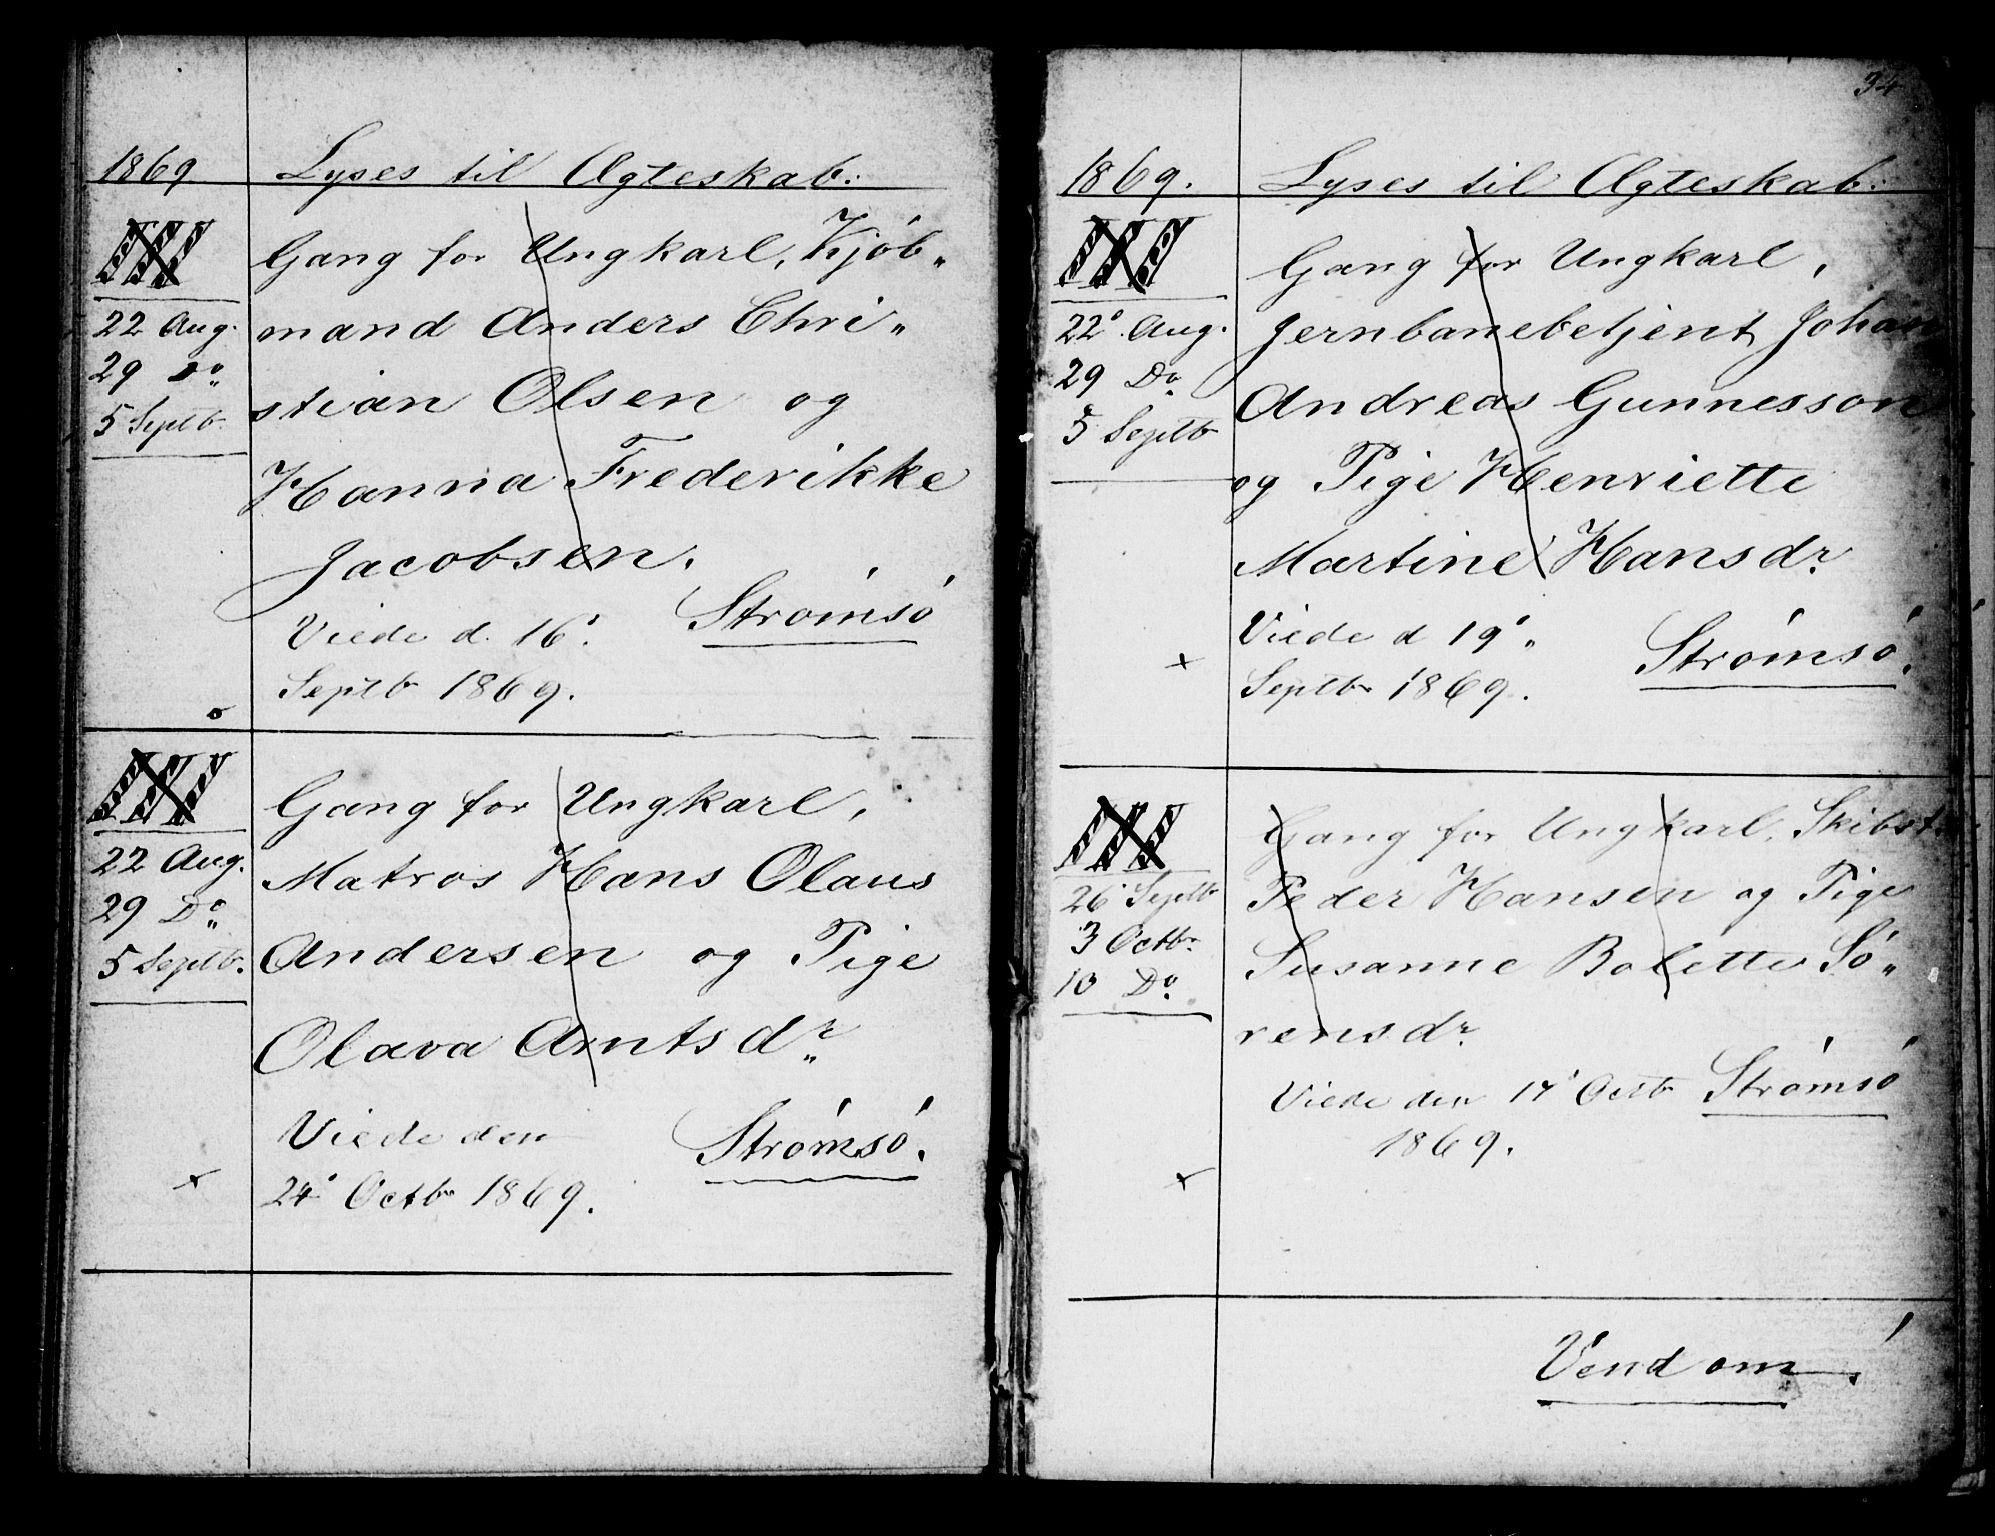 1869 Lyses til Ægteskab:
III Gang for Ungkarl, Kjøb„
22 Aug. mand Anders Chri„
29 Do. stian Olsen og
5 Septb.
Hanna Frederikke
Jacobsen.
Viede d. 16' Strømsø
Septbr 1869.
III Gang for Ungkarl,
22 Aug. Matros Hans Olaus
29 Do. Andersen og Pige
5 Septb.
Olava Arntsdr.
Viede den Strømsø.
24' Octbr 1869.
34
1869. Lyses til Ægteskab:
III Gang for Ungkarl,
22' Aug. Jernbanebetjent Johan
29 Do. Andreas Gunnesson
5 Septbr
og Pige Henriette
Martine Hansdr.
Viede d 19' Strømsø.
Septbr 1869.
III Gang for Ungkarl, Skibst.
26' Septbr Peder Hansen og Pige
3 Octbr. Susanne Bolette Sö„
10 Do. rensdr.
Viede den 17' Octb Strømsø
1869.
Vend om!